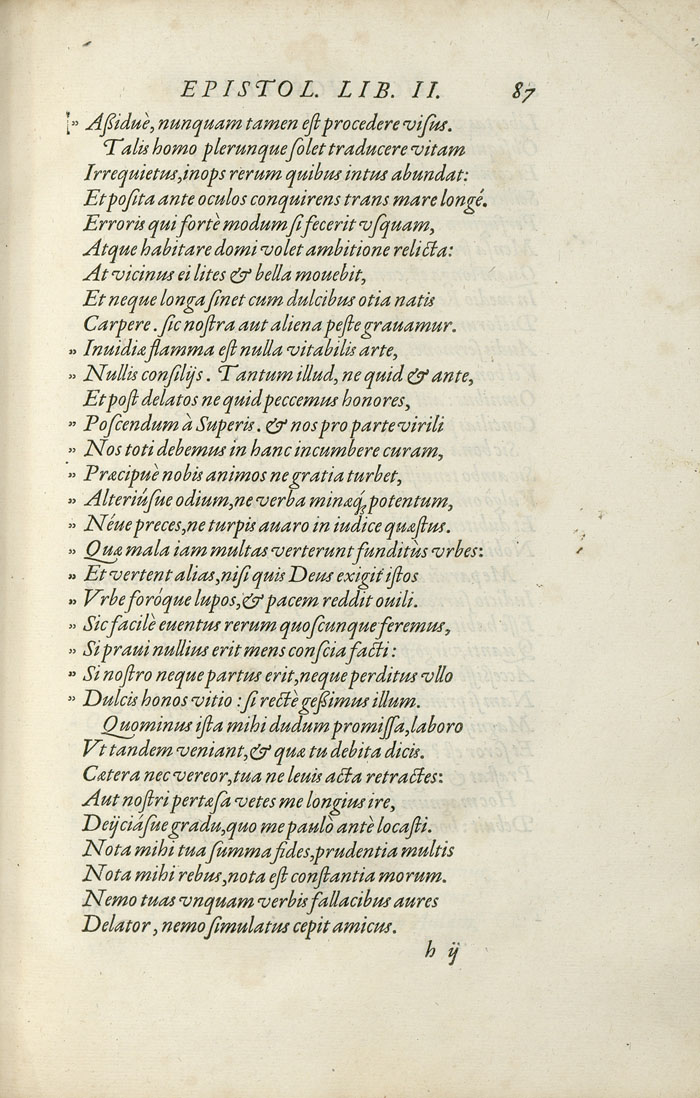 EPISTOL. LIB. II. 87
„ Aßiduè, nunquam tamen eſt procedere viſus.
Talis homo plerunque ſolet traducere vitam
Irrequietus, inops rerum quibus intus abundat:
Et poſita ante oculos conquirens trans mare longé.
Erroris qui fortè modum ſi fecerit vſquam,
Atque habitare domi volet ambitione relicta:
At vicinus ei lites & bella mouebit,
Et neque longa ſinet cum dulcibus otia natis
Carpere. ſic noſtra aut aliena peſte grauamur.
„ Inuidiæ flamma eſt nulla vitabilis arte,
„ Nullis conſilijs. Tantum illud, ne quid & ante,
Et poſt delatos ne quid peccemus honores,
„ Poſcendum à Superis. & nos pro parte virili
„ Nos toti debemus in hanc incumbere curam,
„ Præcipuè nobis animos ne gratia turbet,
„ Alteriúſue odium, ne verba minæq́; potentum,
„ Néue preces, ne turpis auaro in iudice quæſtus.
„ Quæ mala iam multas verterunt funditùs vrbes:
„ Et vertent alias, niſi quis Deus exigit iſtos
„ Vrbe foróque lupos, & pacem reddit ouili.
„ Sic facilè euentus rerum quoſcunque feremus,
„ Si praui nullius erit mens conſcia facti:
„ Si noſtro neque partus erit, neque perditus vllo
„ Dulcis honos vitio: ſi rectè geßimus illum.
Quominus iſta mihi dudum promiſſa, laboro
Vt tandem veniant, & quæ tu debita dicis.
Cætera nec vereor, tua ne leuis acta retractes:
Aut noſtri pertæſa vetes me longius ire,
Deijciáſue gradu, quo me paulò antè locaſti.
Nota mihi tua ſumma fides, prudentia multis
Nota mihi rebus, nota eſt conſtantia morum.
Nemo tuas vnquam verbis fallacibus aures
Delator, nemo ſimulatus cepit amicus.
h ij